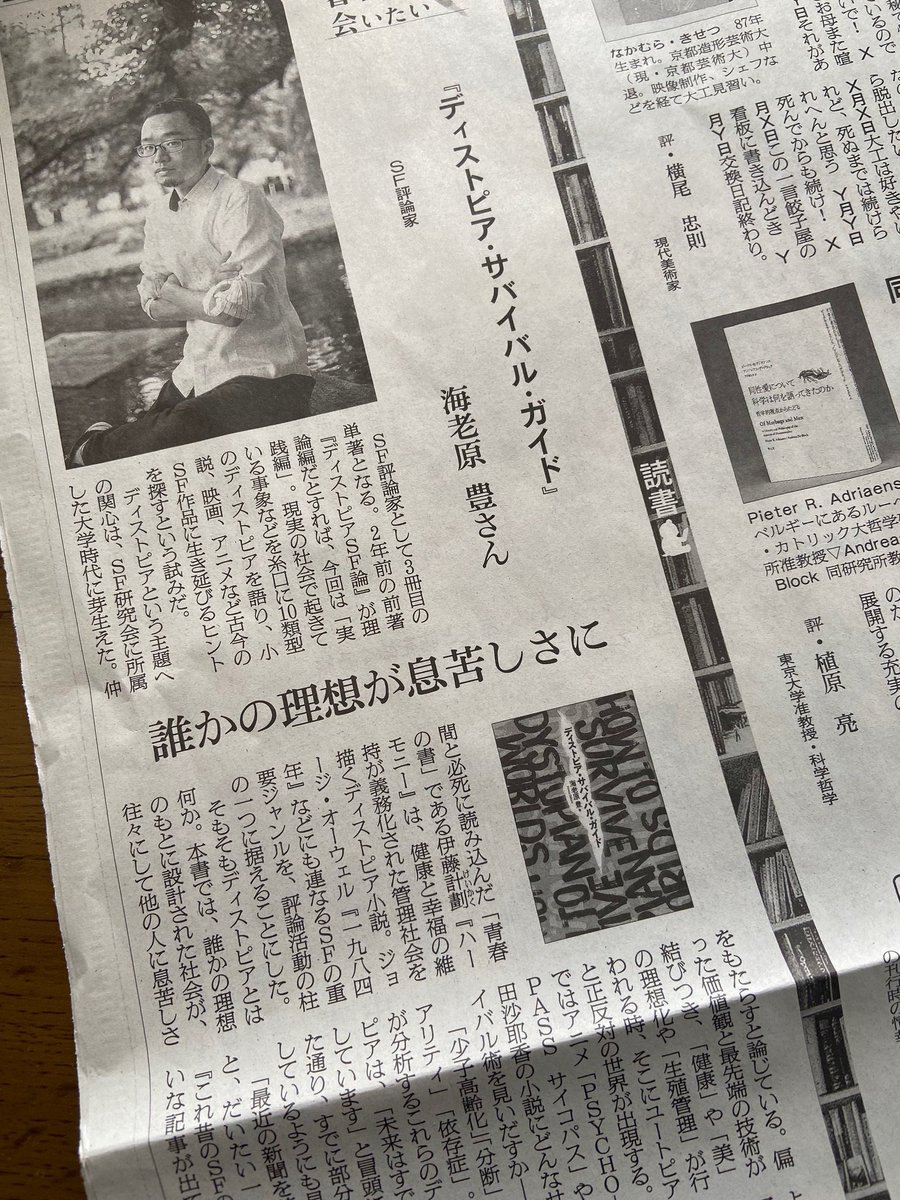 なかむら・きせつ 87年
生まれ。京都造形芸術大
(現・京都芸術大)中
退。映像制作、シェフな
どを経て大工見習い。
お母また喧
Y日それがあ
ら脱出したい
X月X日大工は好きやけ
れど、死ぬまでは続けら
れへんと思う Y月Y日
死んでからも続け! X
月X日この一言餃子屋の
看板に書き込んどき Y
月Y日交換日記終わり。
評・横尾 忠則
現代美術家
読書
同性愛について
科学は何を誤ってきたのか
Of Maybugs and Men
Pieter R. Adriaens
ベルギーにあるルー
・カトリック大哲学
所准教授▽Andreas
Block 同研究所教
展開する充実の
評・植原 亮
東京大学准教授・科学哲学
会いたい
『ディストピア・サバイバル・ガイド』
SF評論家
海老原 豊さん
SF評論家として3冊目の
単著となる。2年前の前著
『ディストピアSF論』が理
論編だとすれば、今回は「実
践編」。現実の社会で起きて
いる事象などを糸口に10類型
のディストピアを語り、小
説、映画、アニメなど古今の
SF作品に生き延びるヒント
を探すという試みだ。
ディストピアという主題へ
の関心は、SF研究会に所属
した大学時代に芽生えた。仲
誰かの理想が息苦しさに
ディストピア・サバイバル・ガイド
海老原豊
HOW TO
SURVIVE
IN DYSTOPIAN
WORLDS
間と必死に読み込んだ「青春
の書」である伊藤計劃『ハー
モニー』は、健康と幸福の維
持が義務化された管理社会を
描くディストピア小説。ジョ
ージ・オーウェル『一九八四
年』などにも連なるSFの重
要ジャンルを、評論活動の柱
の一つに据えることにした。
そもそもディストピアとは
何か。本書では、誰かの理想
のもとに設計された社会が、
往々にして他の人に息苦しさ
をもたらすと論じている。偏
った価値観と最先端の技術が
結びつき、「健康」や「美」
の理想化や「生殖管理」が行
われる時、そこにユートピア
と正反対の世界が出現する。
ではアニメ「PSYCHO-
PASS サイコパス」や
田沙耶香の小説にどんなサ
イバル術を見いだすか―
「少子高齢化」「分断」
アリティ」「依存症」。
が分析するこれらのデ
ピアは、「未来はすで
しています」と冒頭
た通り、すでに部分
しているようにも見
「最近の新聞を
と、だいたい一
『これ昔のSFの
いな記事が出て